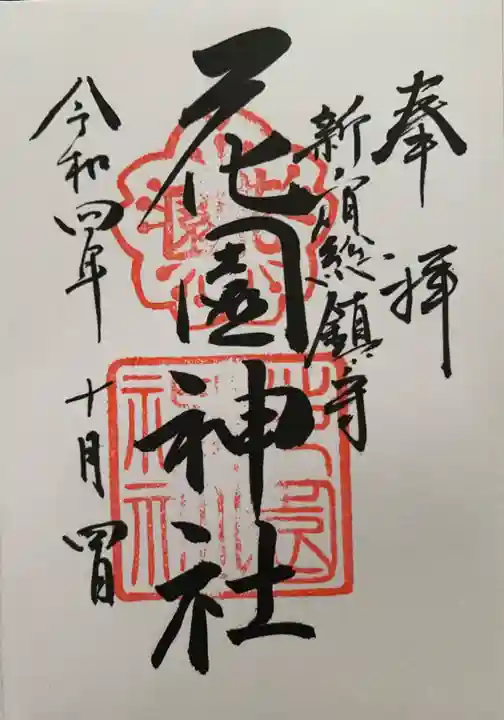 奉拝
新宿総鎮守
花園神社
令和四年十月四日
花園神社